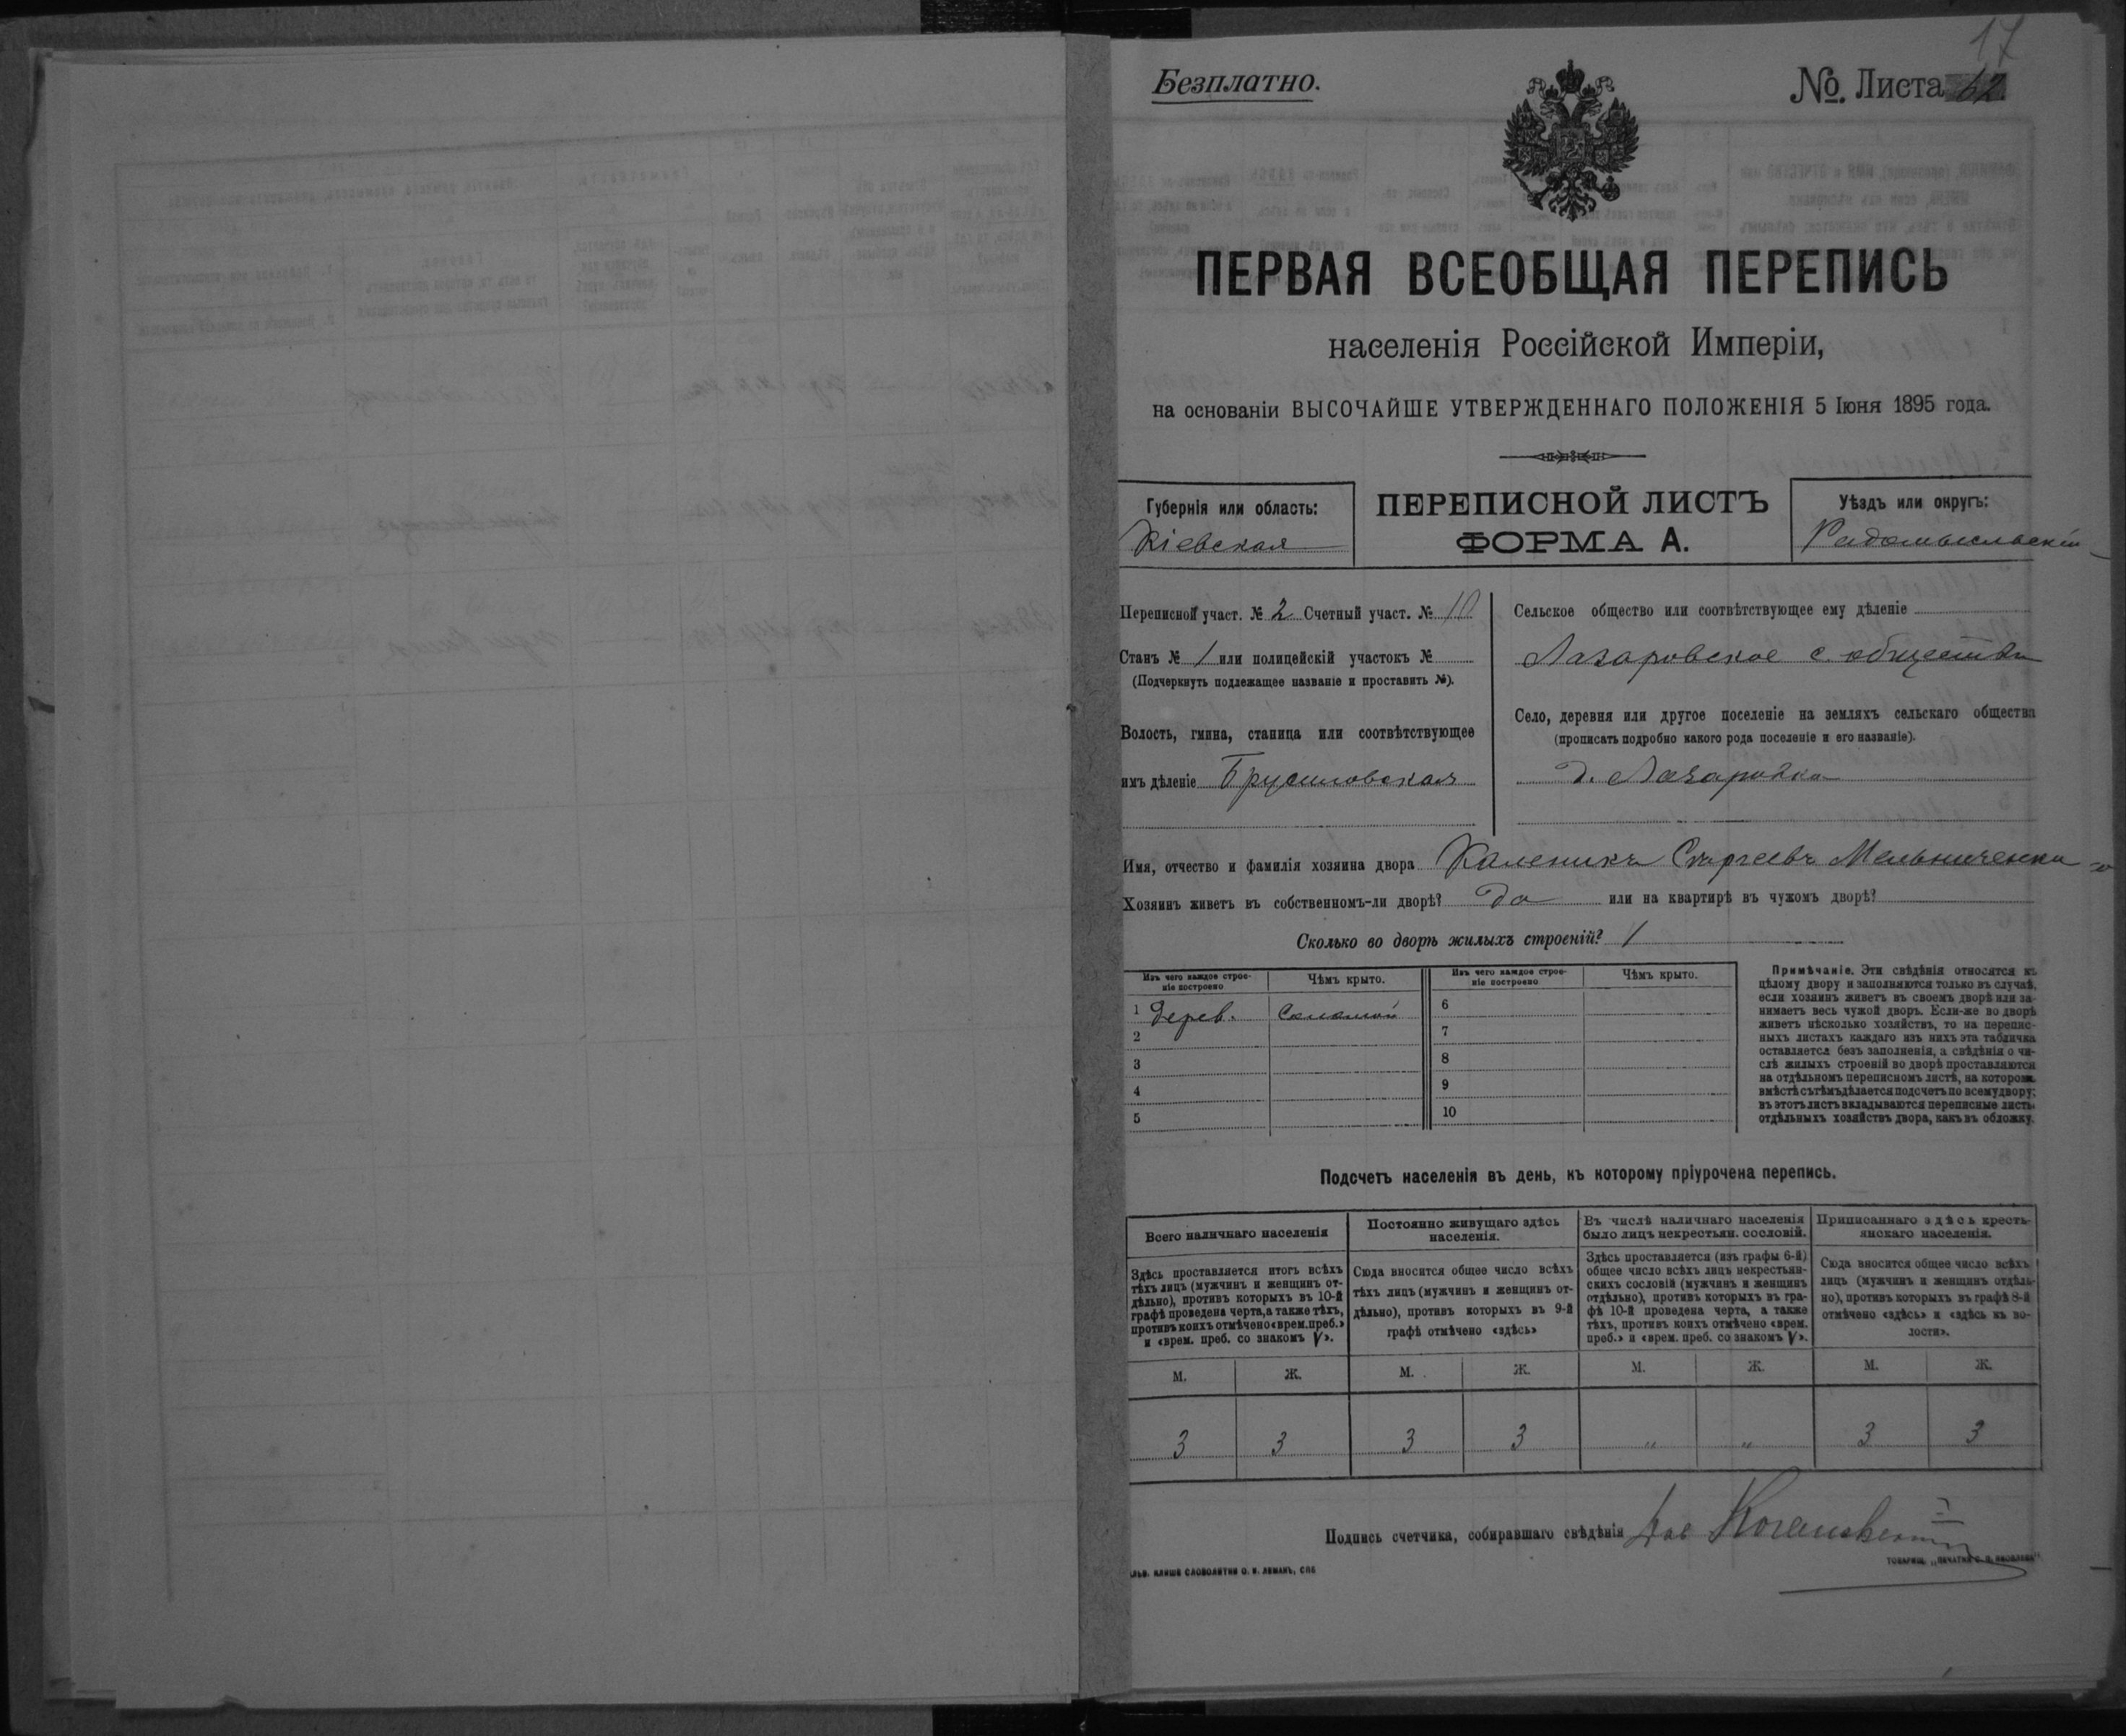 17
Безплатно.
№ Листа 62.
ПЕРВАЯ ВСЕОБЩАЯ ПЕРЕПИСЬ
населенія Россійской Имперіи,
на основаніи ВЫСОЧАЙШЕ УТВЕРЖДЕННАГО ПОЛОЖЕНІЯ 5 Іюня 1895 года.
Губернія или область:
Кіевская
ПЕРЕПИСНОЙ ЛИСТЪ
ФОРМА А.
Уѣздъ или округъ:
Радомысльскій
Переписной участ. № 2 Счетный участ. № 10
Станъ № 1 или полицейскій участокъ №
(Подчеркнуть подлежащее названіе и проставить №).
Волость, гмина, станица или соотвѣтствующее
имъ дѣленіе Брусиловская
Сельское общество или соотвѣтствующее ему дѣленіе
Лазаровское с. общество
Село, деревня или другое поселеніе на земляхъ сельскаго общества
(прописать подробно какого рода поселеніе и его названіе).
д. Лазаровка
Имя, отчество и фамилія хозяина двора Каленикъ Сергеевъ Мельниченко
Хозяинъ живетъ въ собственномъ-ли дворѣ? да или на квартирѣ въ чужомъ дворѣ?
Сколько во дворѣ жилыхъ строеній? 1
Изъ чего каждое строе-
ніе построено
Чѣмъ крыто.
Изъ чего каждое строе-
ніе построено
Чѣмъ крыто.
1 дерев. Соломой
2
3
4
5
6
7
8
9
10
Примѣчаніе. Эти свѣдѣнія относятся къ
цѣлому двору и заполняются только въ случаѣ,
если хозяинъ живетъ въ своемъ дворѣ или за-
нимаетъ весь чужой дворъ. Если-же во дворѣ
живетъ нѣсколько хозяйствъ, то на перепис-
ныхъ листахъ каждаго изъ нихъ эта табличка
оставляется безъ заполненія, а свѣдѣнія о чи-
слѣ жилыхъ строеній во дворѣ проставляются
на отдѣльномъ переписномъ листѣ, на которомъ
вмѣстѣ съ тѣмъ дѣлается подсчетъ по всему двору;
въ этотъ листъ вкладываются переписные листы
отдѣльныхъ хозяйствъ двора, какъ въ обложку.
Подсчетъ населенія въ день, къ которому пріурочена перепись.
Всего наличнаго населенія
Здѣсь проставляется итогъ всѣхъ
тѣхъ лицъ (мужчинъ и женщинъ от-
дѣльно), противъ которыхъ въ 10-й
графѣ проведена черта, а также тѣхъ,
противъ коихъ отмѣчено «врем. преб.»
и «врем. преб. со знакомъ V».
Постоянно живущаго здѣсь
населенія.
Сюда вносится общее число всѣхъ
тѣхъ лицъ (мужчинъ и женщинъ от-
дѣльно), противъ которыхъ въ 9-й
графѣ отмѣчено «здѣсь»
Въ числѣ наличнаго населенія
было лицъ некрестьян. сословій.
Здѣсь проставляется (изъ графы 6-й)
общее число всѣхъ лицъ некрестьян-
скихъ сословій (мужчинъ и женщинъ
отдѣльно), противъ которыхъ въ гра-
фѣ 10-й проведена черта, а также
тѣхъ, противъ коихъ отмѣчено «врем.
преб.» и «врем. преб. со знакомъ V».
Приписаннаго здѣсь кресть-
янскаго населенія.
Сюда вносится общее число всѣхъ
лицъ (мужчинъ и женщинъ отдѣль-
но), противъ которыхъ въ графѣ 8-й
отмѣчено «здѣсь» и «здѣсь къ во-
лости».
М. Ж. М. Ж. М. Ж. М. Ж.
3 3 3 3 " " 3 3
Подпись счетчика, собиравшаго свѣдѣнія
КЛИШЕ СЛОВОЛИТНИ О. И. ЛЕМАНЪ, СПБ
ТОВАРИЩ. „ПЕЧАТНЯ С. П. ЯКОВЛЕВА"